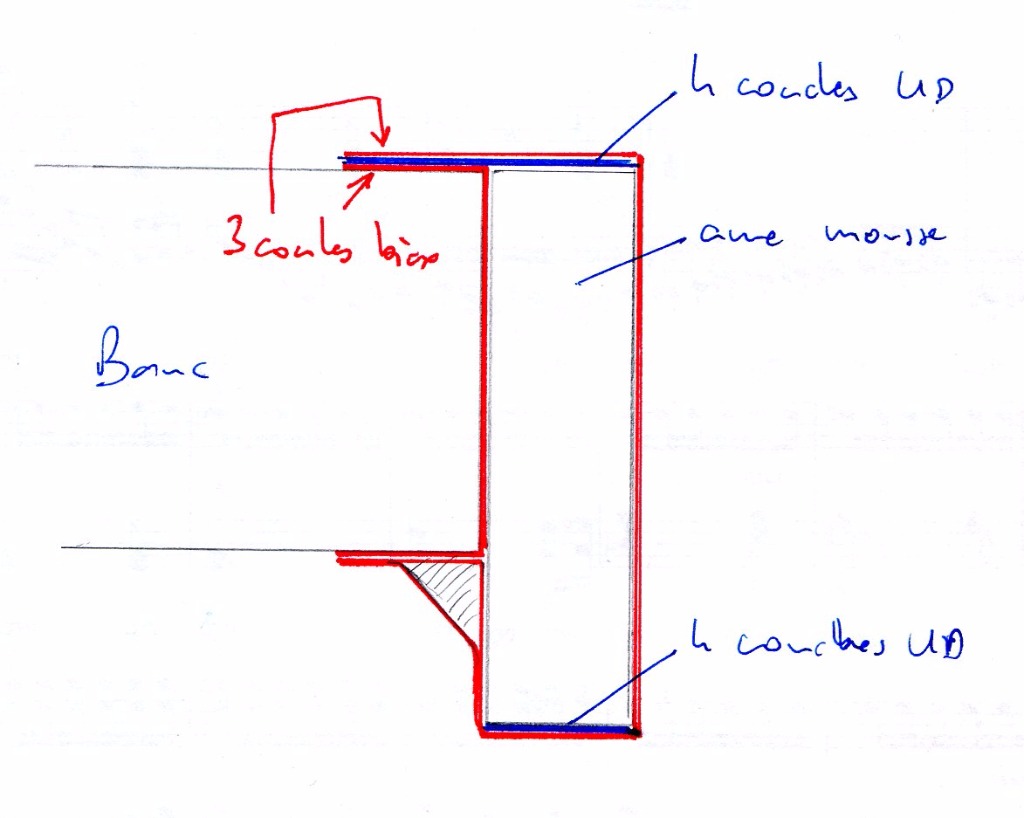 4 couches UD
3 couches biax
ame mousse
Banc
4 couches UD